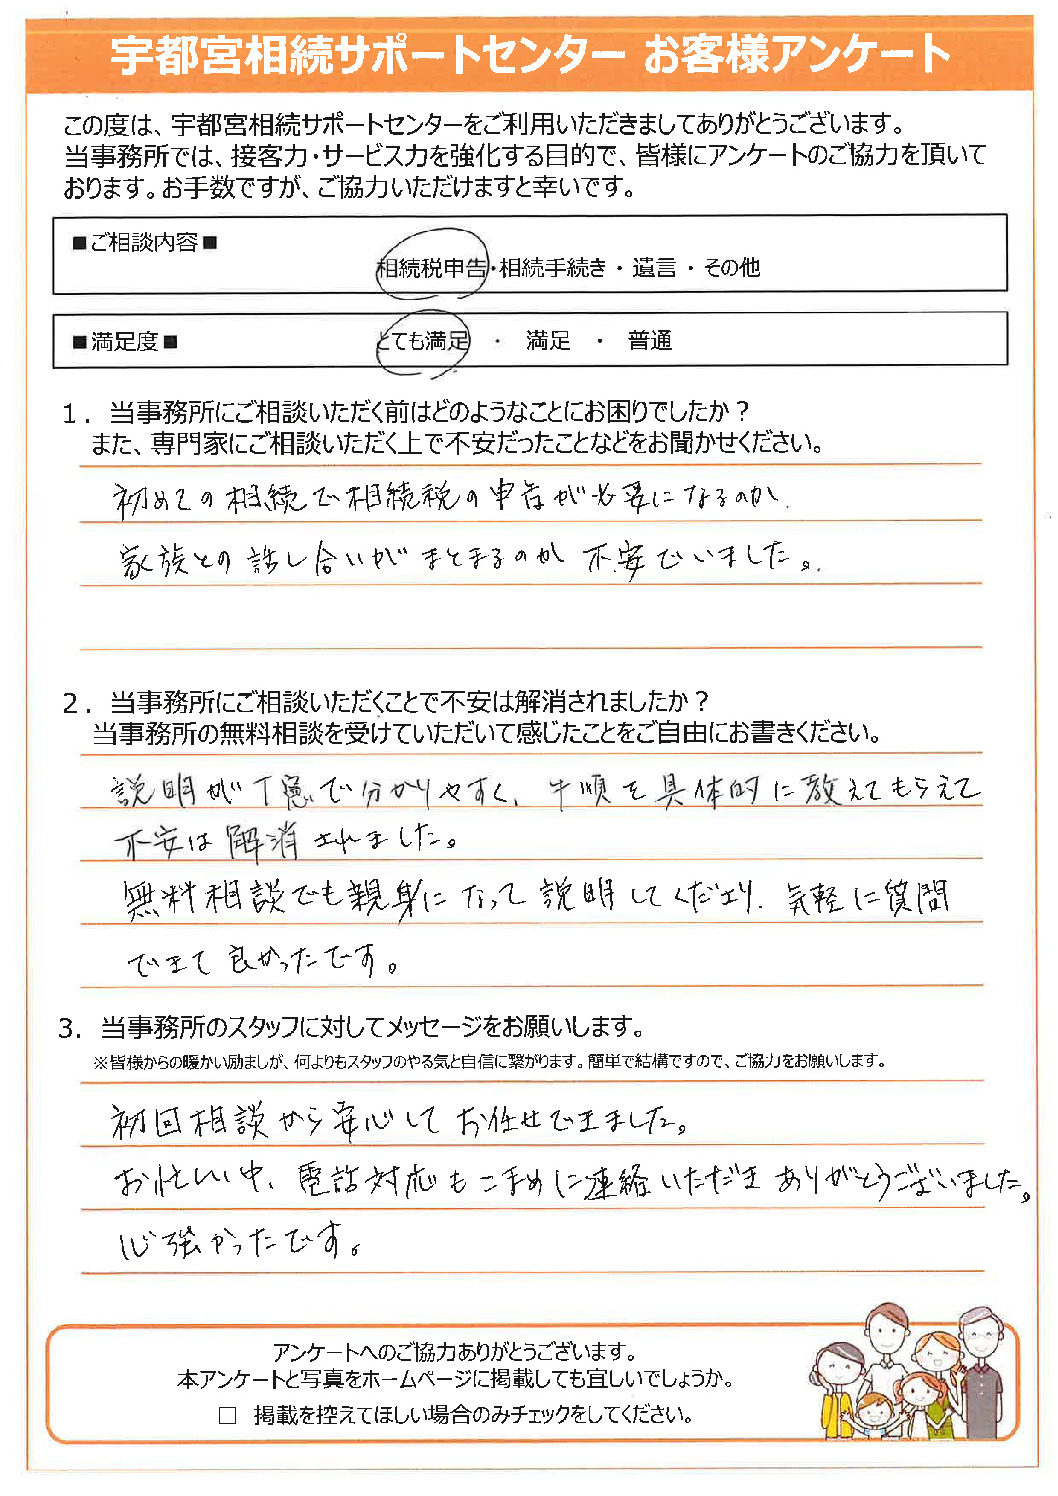 宇都宮相続サポートセンター お客様アンケート
この度は、宇都宮相続サポートセンターをご利用いただきましてありがとうございます。
当事務所では、接客力・サービス力を強化する目的で、皆様にアンケートのご協力を頂いて
おります。お手数ですが、ご協力いただけますと幸いです。
■ご相談内容■
相続税申告・相続手続き ・ 遺言 ・ その他
■満足度■ とても満足 ・ 満足 ・ 普通
１．当事務所にご相談いただく前はどのようなことにお困りでしたか？
また、専門家にご相談いただく上で不安だったことなどをお聞かせください。
初めての相続で相続税の申告が必要になるのか、
家族との話し合いがまとまるのか不安でいました。
２．当事務所にご相談いただくことで不安は解消されましたか？
当事務所の無料相談を受けていただいて感じたことをご自由にお書きください。
説明が丁寧で分かりやすく、手順を具体的に教えてもらえて
不安は解消されました。
無料相談でも親身になって説明してくださり、気軽に質問
できて良かったです。
３．当事務所のスタッフに対してメッセージをお願いします。
※皆様からの暖かい励ましが、何よりもスタッフのやる気と自信に繋がります。簡単で結構ですので、ご協力をお願いします。
初回相談から安心してお任せできました。
お忙しい中、電話対応もこまめに連絡いただきありがとうございました。
心強かったです。
アンケートへのご協力ありがとうございます。
本アンケートと写真をホームページに掲載しても宜しいでしょうか。
□ 掲載を控えてほしい場合のみチェックをしてください。